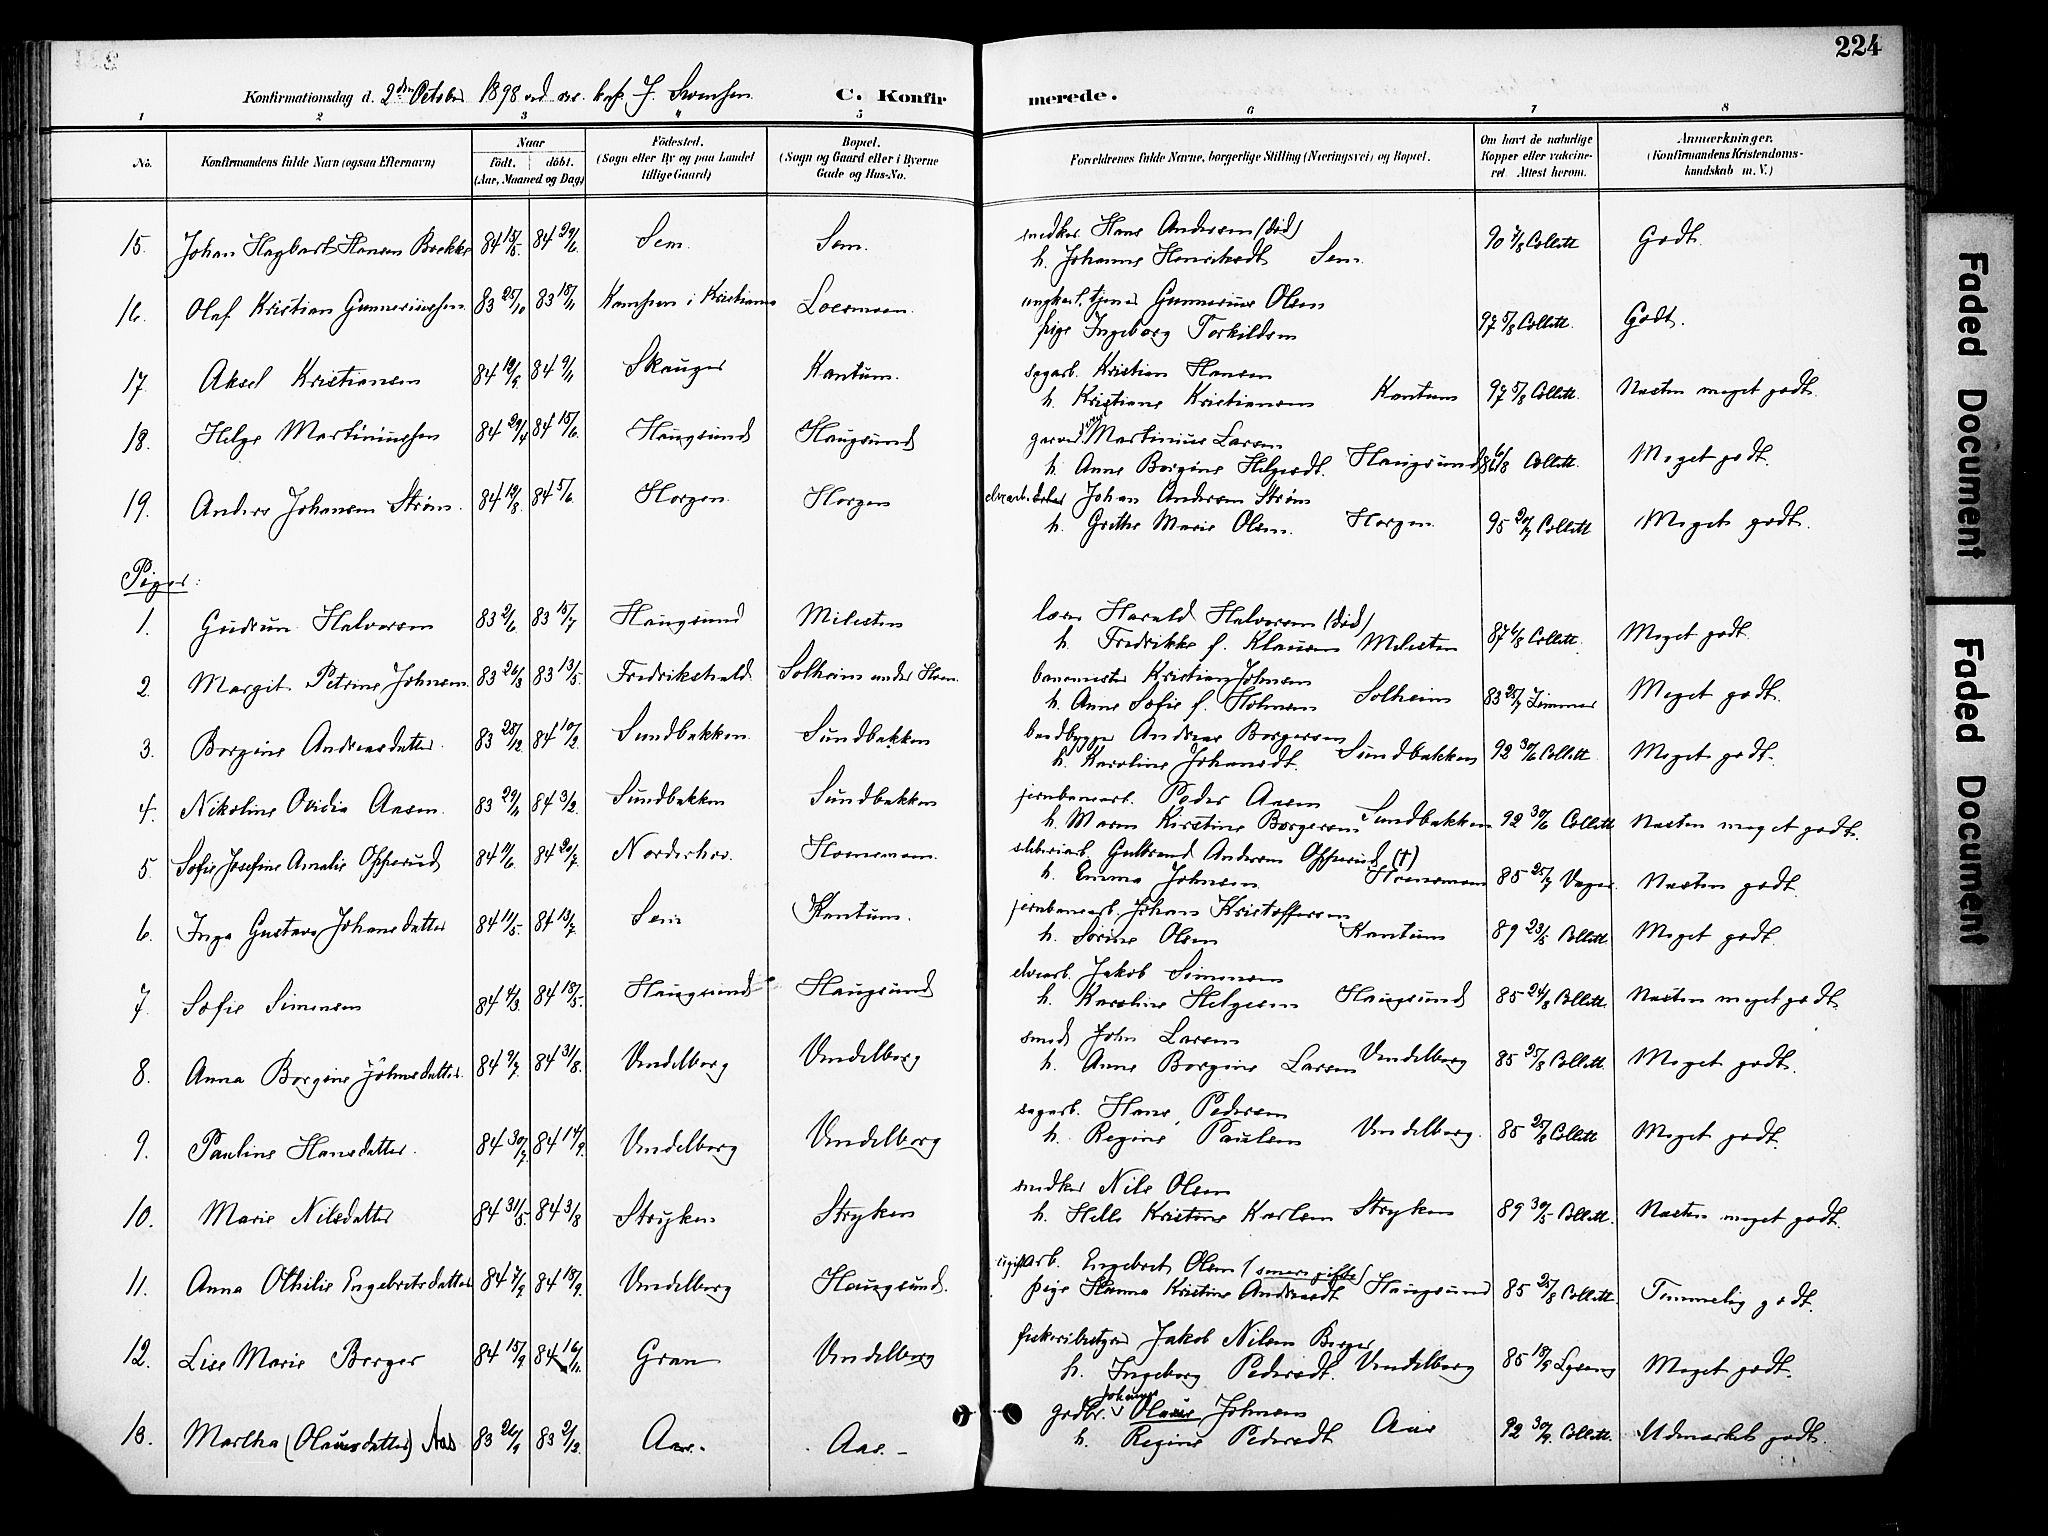 224
Konfirmationsdag d. 2den October 1898 ved J. Svensen. C. Konfirmerede.
1 2 3 4 5 6 7 8
No. Konfirmandens fulde Navn (ogsaa Efternavn) Naar födt. döbt. (Aar, Maaned og Dag) Födested. (Sogn eller By og paa Landet tillige Gaard) Bopæl. (Sogn og Gaard eller i Byerne Gade og Hus-No. Forældrenes fulde Navne, borgerlige Stilling (Næringsvei) og Bopæl. Om havt de naturlige Kopper eller vakcineret. Attest herom. Anmærkninger. (Konfirmandens Kristendomskundskab m. V.)
15. Johan Hagbart Hansen Brekke 84 15/5. 84 29/6. Sem. Sem. Hans Andersen (död) 90 7/8 Collett Godt.
h. Johanne Henriksdt Sem.
16. Olaf Kristian Gunneriussen 83 25/10 83 18/11 Kampen i Kristiania Loesmoen. ungkarl, tjener Gunnerius Olsen
pige Ingeborg Torkildsen 97 5/8 Collett. Godt.
17. Aksel Kristiansen 84 12/9 84 9/11 Skauger Kantum. sagarb. Kristian Hansen
h. Kristiane Kristiansen Kantum 97 5/8 Collett. Næsten meget godt.
18. Helge Martiniussen 84 29/4 84 15/6. Haugsund Haugsund Martinius Larsen
h. Anne Borgine Helgesdt. Haugsund 86 6/8 Collett. Meget godt.
19. Anders Johansen Strøm. 84 12/3. 84 5/6. Horgen Horgen Johan Andersen Strøm
h. Grethe Marie Olsen. Horgen. 95 20/7 Collett Meget godt.
Piger:
1. Gudrun Halvorsen 83 2/6. 83 15/7 Haugsund Milesten Harald Halvorsen (död)
h. Fredrikke f. Klausen Milesten 87 6/8 Collett. Meget godt.
2. Margit Petrine Johnsen 83 26/3 83 13/5. Fredrikshald. Solheim under Hoen. banemester Kristian Johnsen
h. Anne Sofie f. Holmsen Solheim 83 25/7 Zimmer Meget godt.
3. Borgine Andreasdatter. 83 28/12. 84 10/2. Sundbakken. Sundbakken baadbygger Andreas Borgersen
h. Karoline Johansdt. Sundbakken 92 30/6 Collett Meget godt.
4. Nikoline Ovidia Aasen. 83 29/11 84 3/2. Sundbakken Sundbakken jernbanearb. Peder Aasen
h. Maren Kirstine Borgersen Sundbakken 92 30/6 Collett Næsten meget godt.
5. Sofie Josefine Amalie Opperud 84 11/6. 84 20/7. Norderhov. Hoensmoen. sliberiarb. Gulbrand Andersen Opperud (†)
h. Emma Johnsen Hoensmoen 85 25/7 Næsten godt.
6. Inga Gustava Johansdatter 84 11/5. 84 13/7. Sem Kantum. jernbanearb. Johan Kristoffersen
h. Sorine Olsen Kantum 89 23/5 Collett Meget godt.
7. Sofie Simensen 84 4/3. 84 18/5. Haugsund Haugsund elvearb. Jakob Simensen
h. Karoline Helgesen Haugsund 85 24/8 Collett. Næsten meget godt.
8. Anna Borgine Johnsdatter. 84 9/7. 84 31/8. Vendelborg Vendelborg smed John Larsen
h. Anne Borgine Larsen Vendelborg 85 25/8 Collett. Meget godt.
9. Pauline Hansdatter. 84 30/7. 84 14/9. Vendelborg Vendelborg sagarb. Hans Pedersen
h. Regine Paulsen Vendelborg. 85 25/8 Collett Meget godt.
10. Marie Nilsdatter 84 31/5. 84 3/8 Stryken Stryken Nils Olsen
h. Helle Kristine Karlsen Stryken 89 30/5 Collett. Næsten meget godt.
11. Anna Othilie Engebretsdatter 84 7/7 84 18/9. Vendelborg Haugsund. arb. Engebret Olsen (senere gifte)
pige Hanna Kristine Andreasdt Haugsund 85 25/8 Collett. Temmelig godt.
12. Lise Marie Berger 84 15/9 84 16/11. Gran Vendelborg Jakob Nilsen Berger
h. Ingeborg Pedersdt. Vendelborg 85 18/9 Meget godt.
13. Martha (Olausdatter) Aas 83 26/9 83 2/12. Aas. Aas. grdbr. Johannes Olaus Johnsen
h. Regine Pedersdt Aas 92 30/9. Collett. Udmærket godt.
Faded Document
Faded Document